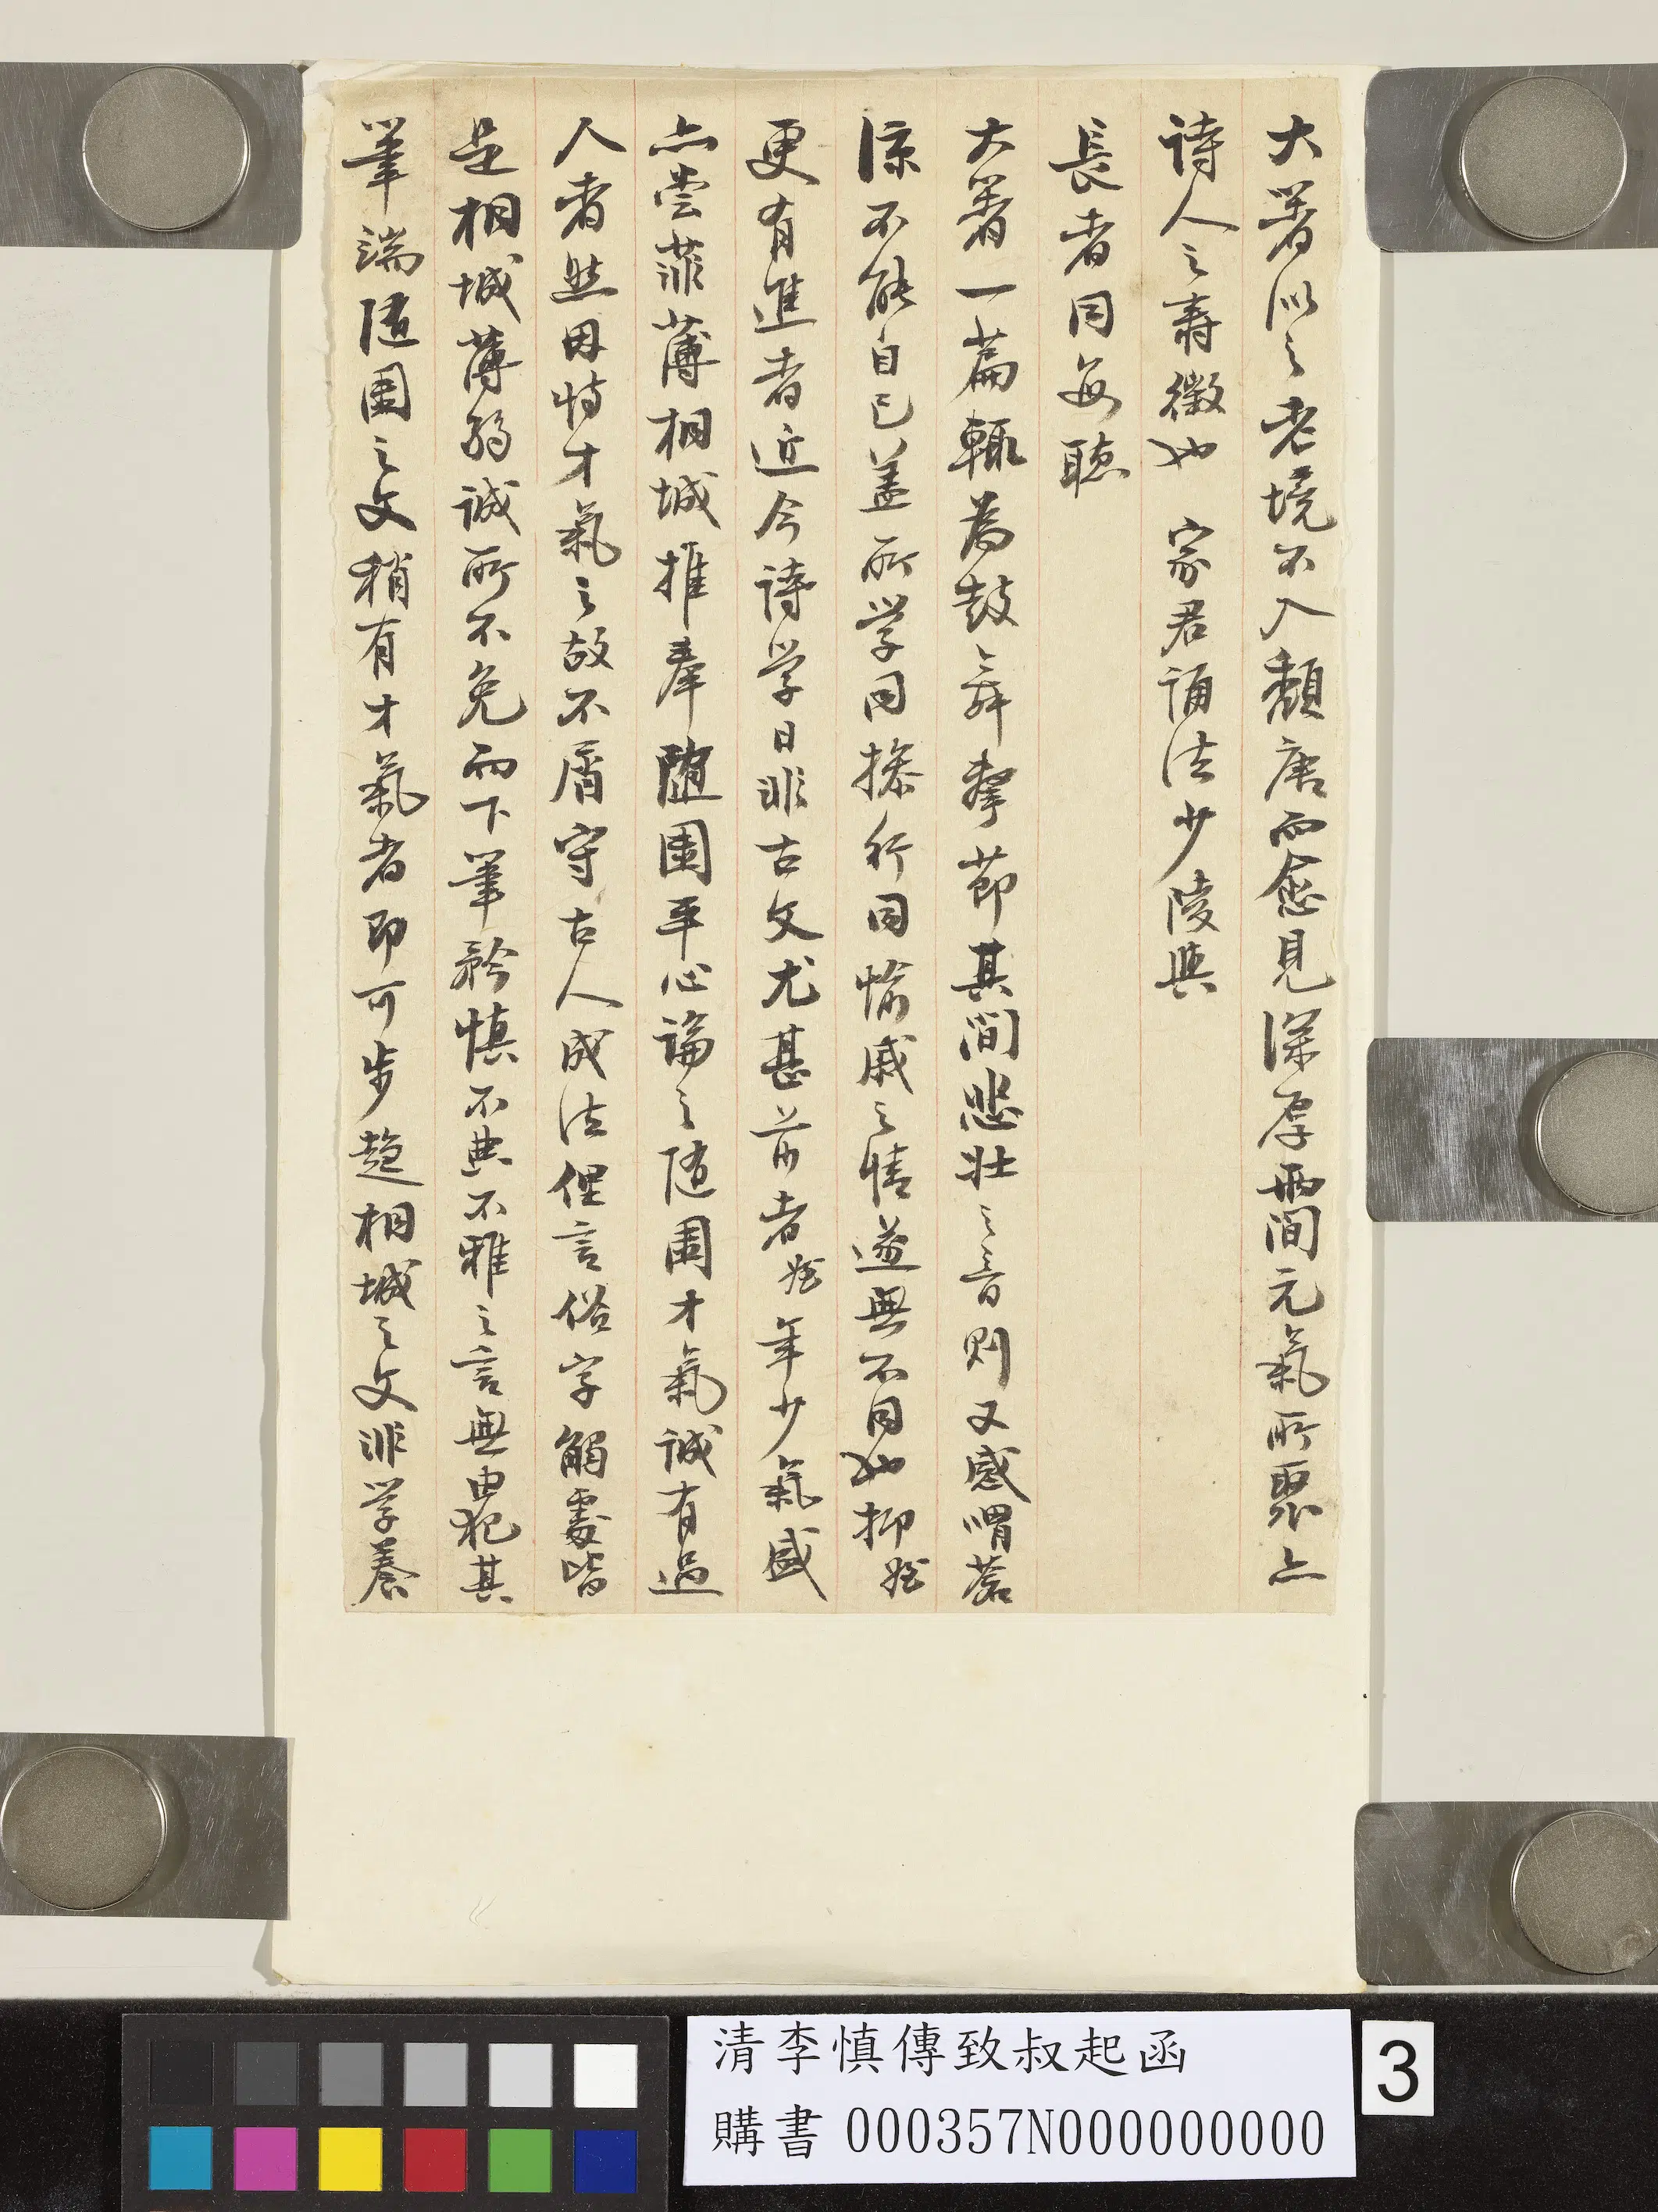 大著似之老境不入頹唐而愈見深厚兩間元氣所聚亦
詩人之壽徵也　家君誦法少陵與
長者同每聽
大著一篇輒為鼓舞擊節其間悲壯之音則又感喟蒼
涼不能自已蓋所學同操行同愉戚之情遂無不同也抑姪
更有進者近今詩學日非古文尤甚前者姪年少氣盛
亦嘗菲薄桐城推奉隨園平心論之隨園才氣誠有過
人者然因恃才氣之故不屑守古人成法俚言俗字觸處皆
是桐城薄弱誠所不免而下筆矜慎不典不雅之言無由犯其
筆端隨園之文稍有才氣者即可步趨桐城之文非學養
清李慎傳致叔起函
購書000357N000000000
3